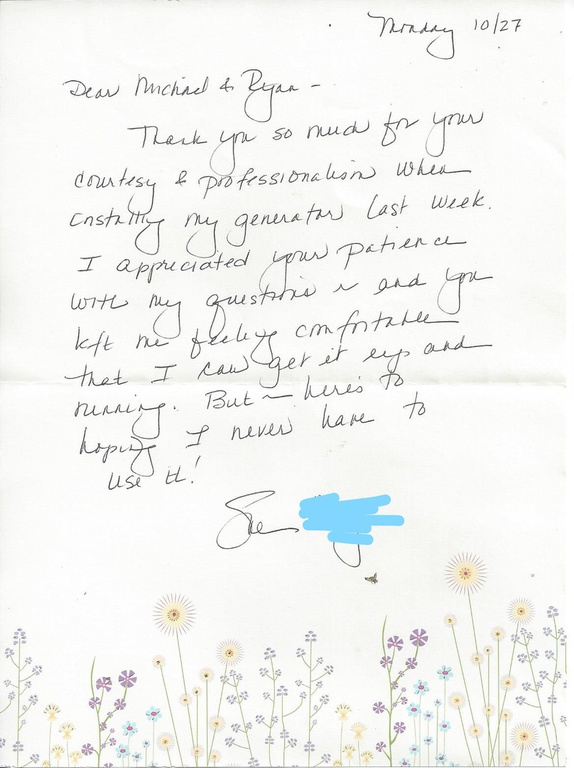 Monday 10/27
Dear Michael & Ryan -
Thank you so much for your
courtesy & professionalism when
installing my generator last week.
I appreciated your patience
with my questions ~ and you
left me feeling comfortable
that I can get it up and
running. But ~ here's to
hoping I never have to
use it!
Sue